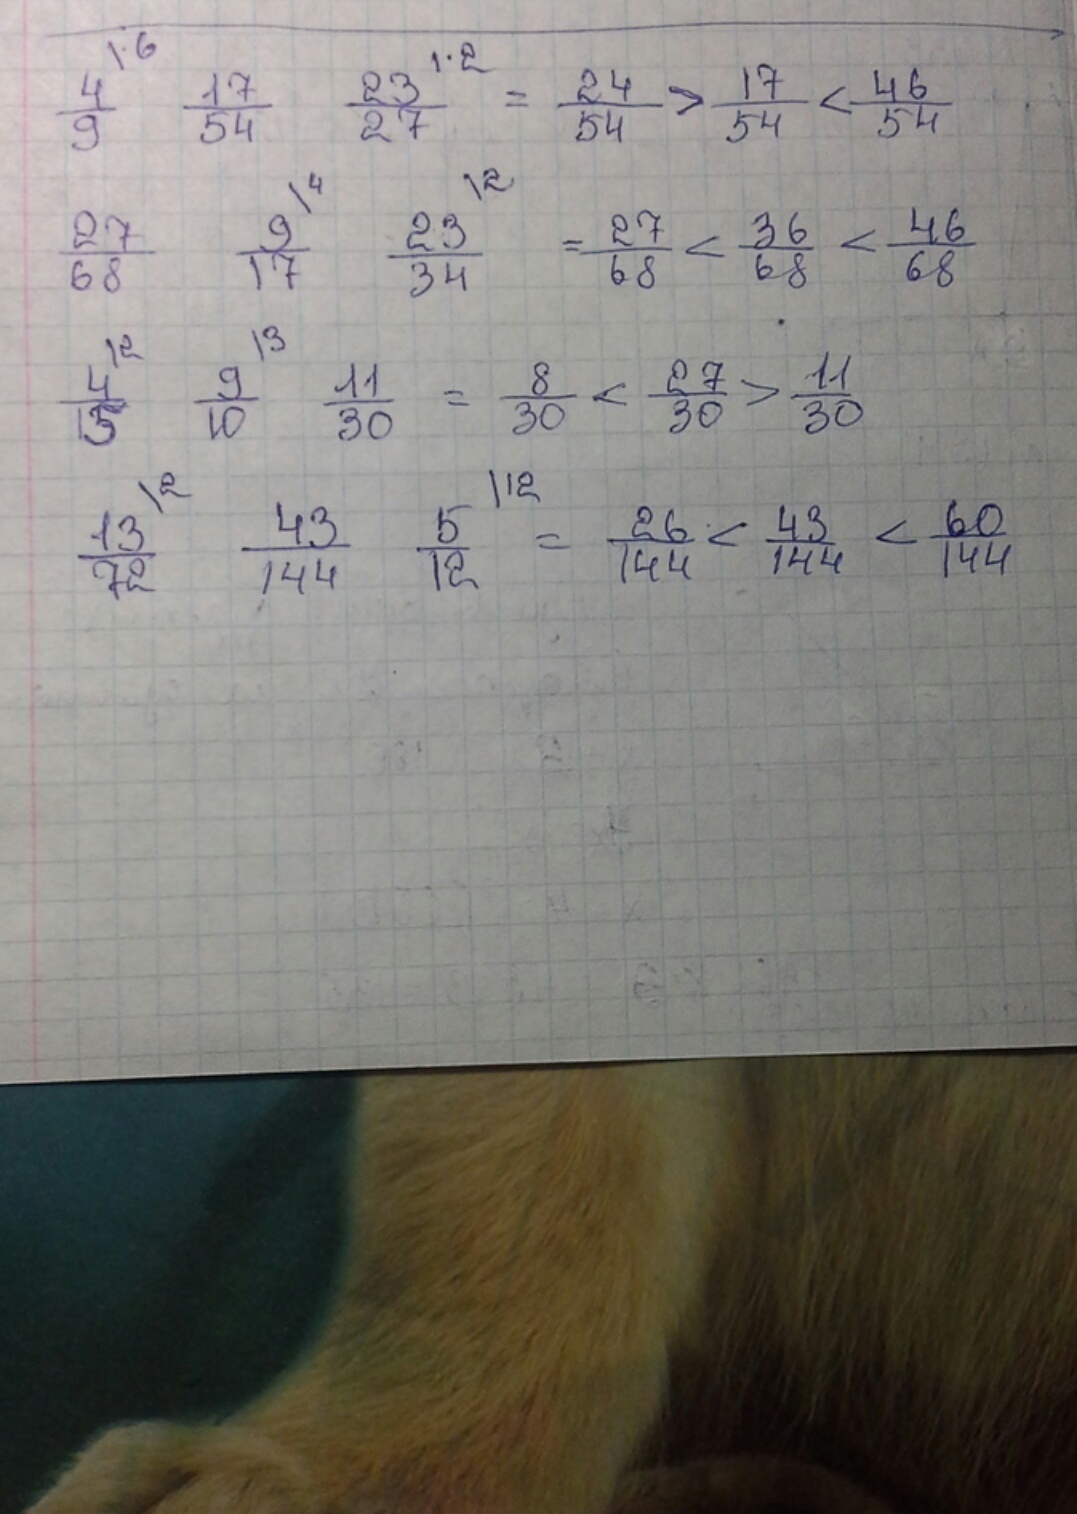 4/9 \·6 17/54 23/27 \·2 = 24/54 > 17/54 < 46/54
27/68 9/17 \4 23/34 \2 = 27/68 < 36/68 < 46/68
4/15 \2 9/10 \3 11/30 = 8/30 < 27/30 > 11/30
13/72 \2 43/144 5/12 \12 = 26/144 < 43/144 < 60/144